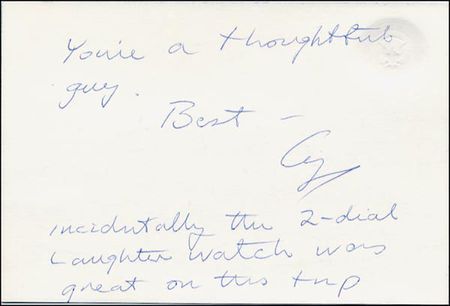 You're a thoughtful
guy.
Best —
Cy
incidentally the 2-dial
Laughter watch was
great on this trip